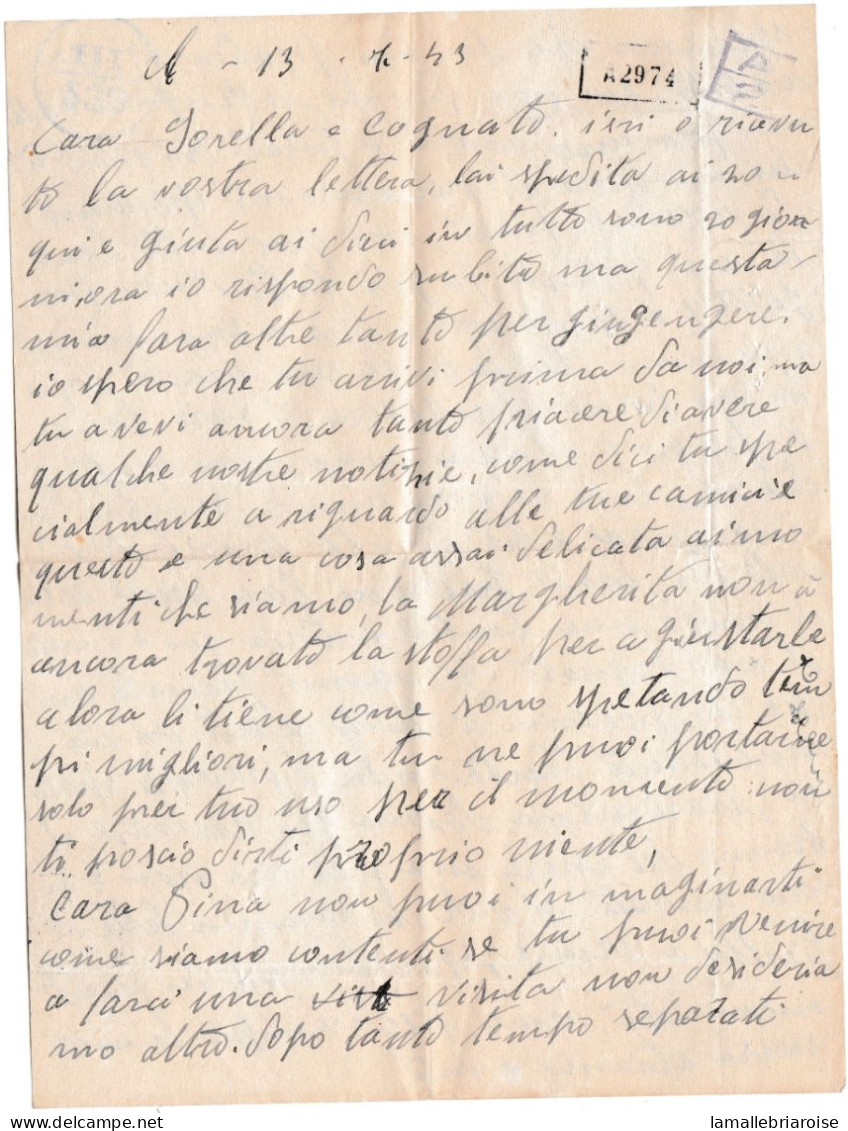 13 - 7 - 43
A2974
Cara Sorella e Cognato, ieri o ricevu
to la vostra lettera, lai spedita ai 20
qui e giunta ai dieci in tutto sono 20 gior
ni, ora io rispondo subito ma questa
mia fara altre tanto per giungere.
io spero che tu arrivi prima da noi, ma
tu avevi ancora tanto piacere di avere
qualche nostre notizie, come dici tu spe
cialmente a riguardo alle tue camicie
questo e una cosa assai delicata ai mo
menti che siamo, la Margherita non à
ancora trovato la stoffa per agiustarle
alora li tiene come sono spetando tem
pi migliori, ma tu ne puoi portare
solo per tuo uso per il momento non
ti poscio dirti proprio niente,
Cara Pina non puoi in maginarti
come siamo contenti se tu puoi venire
a farci una visita non desideria
mo altro. dopo tanto tempo separati
lamallebriaroise